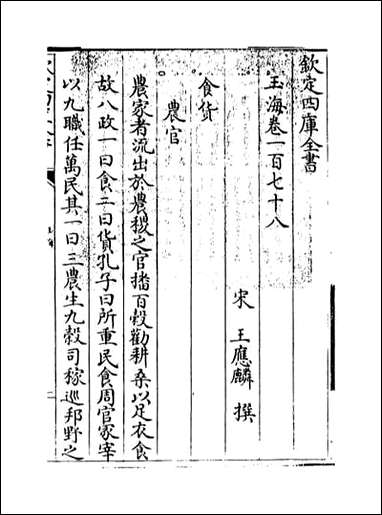 欽定四庫全書
玉海卷一百七十八
宋 王應麟 撰
食貨
農官
農家者流出於農稷之官播百穀勸耕桑以足衣食
故八政一曰食二曰貨孔子曰所重民食周官冢宰
以九職任萬民其一曰三農生九穀司稼巡邦野之